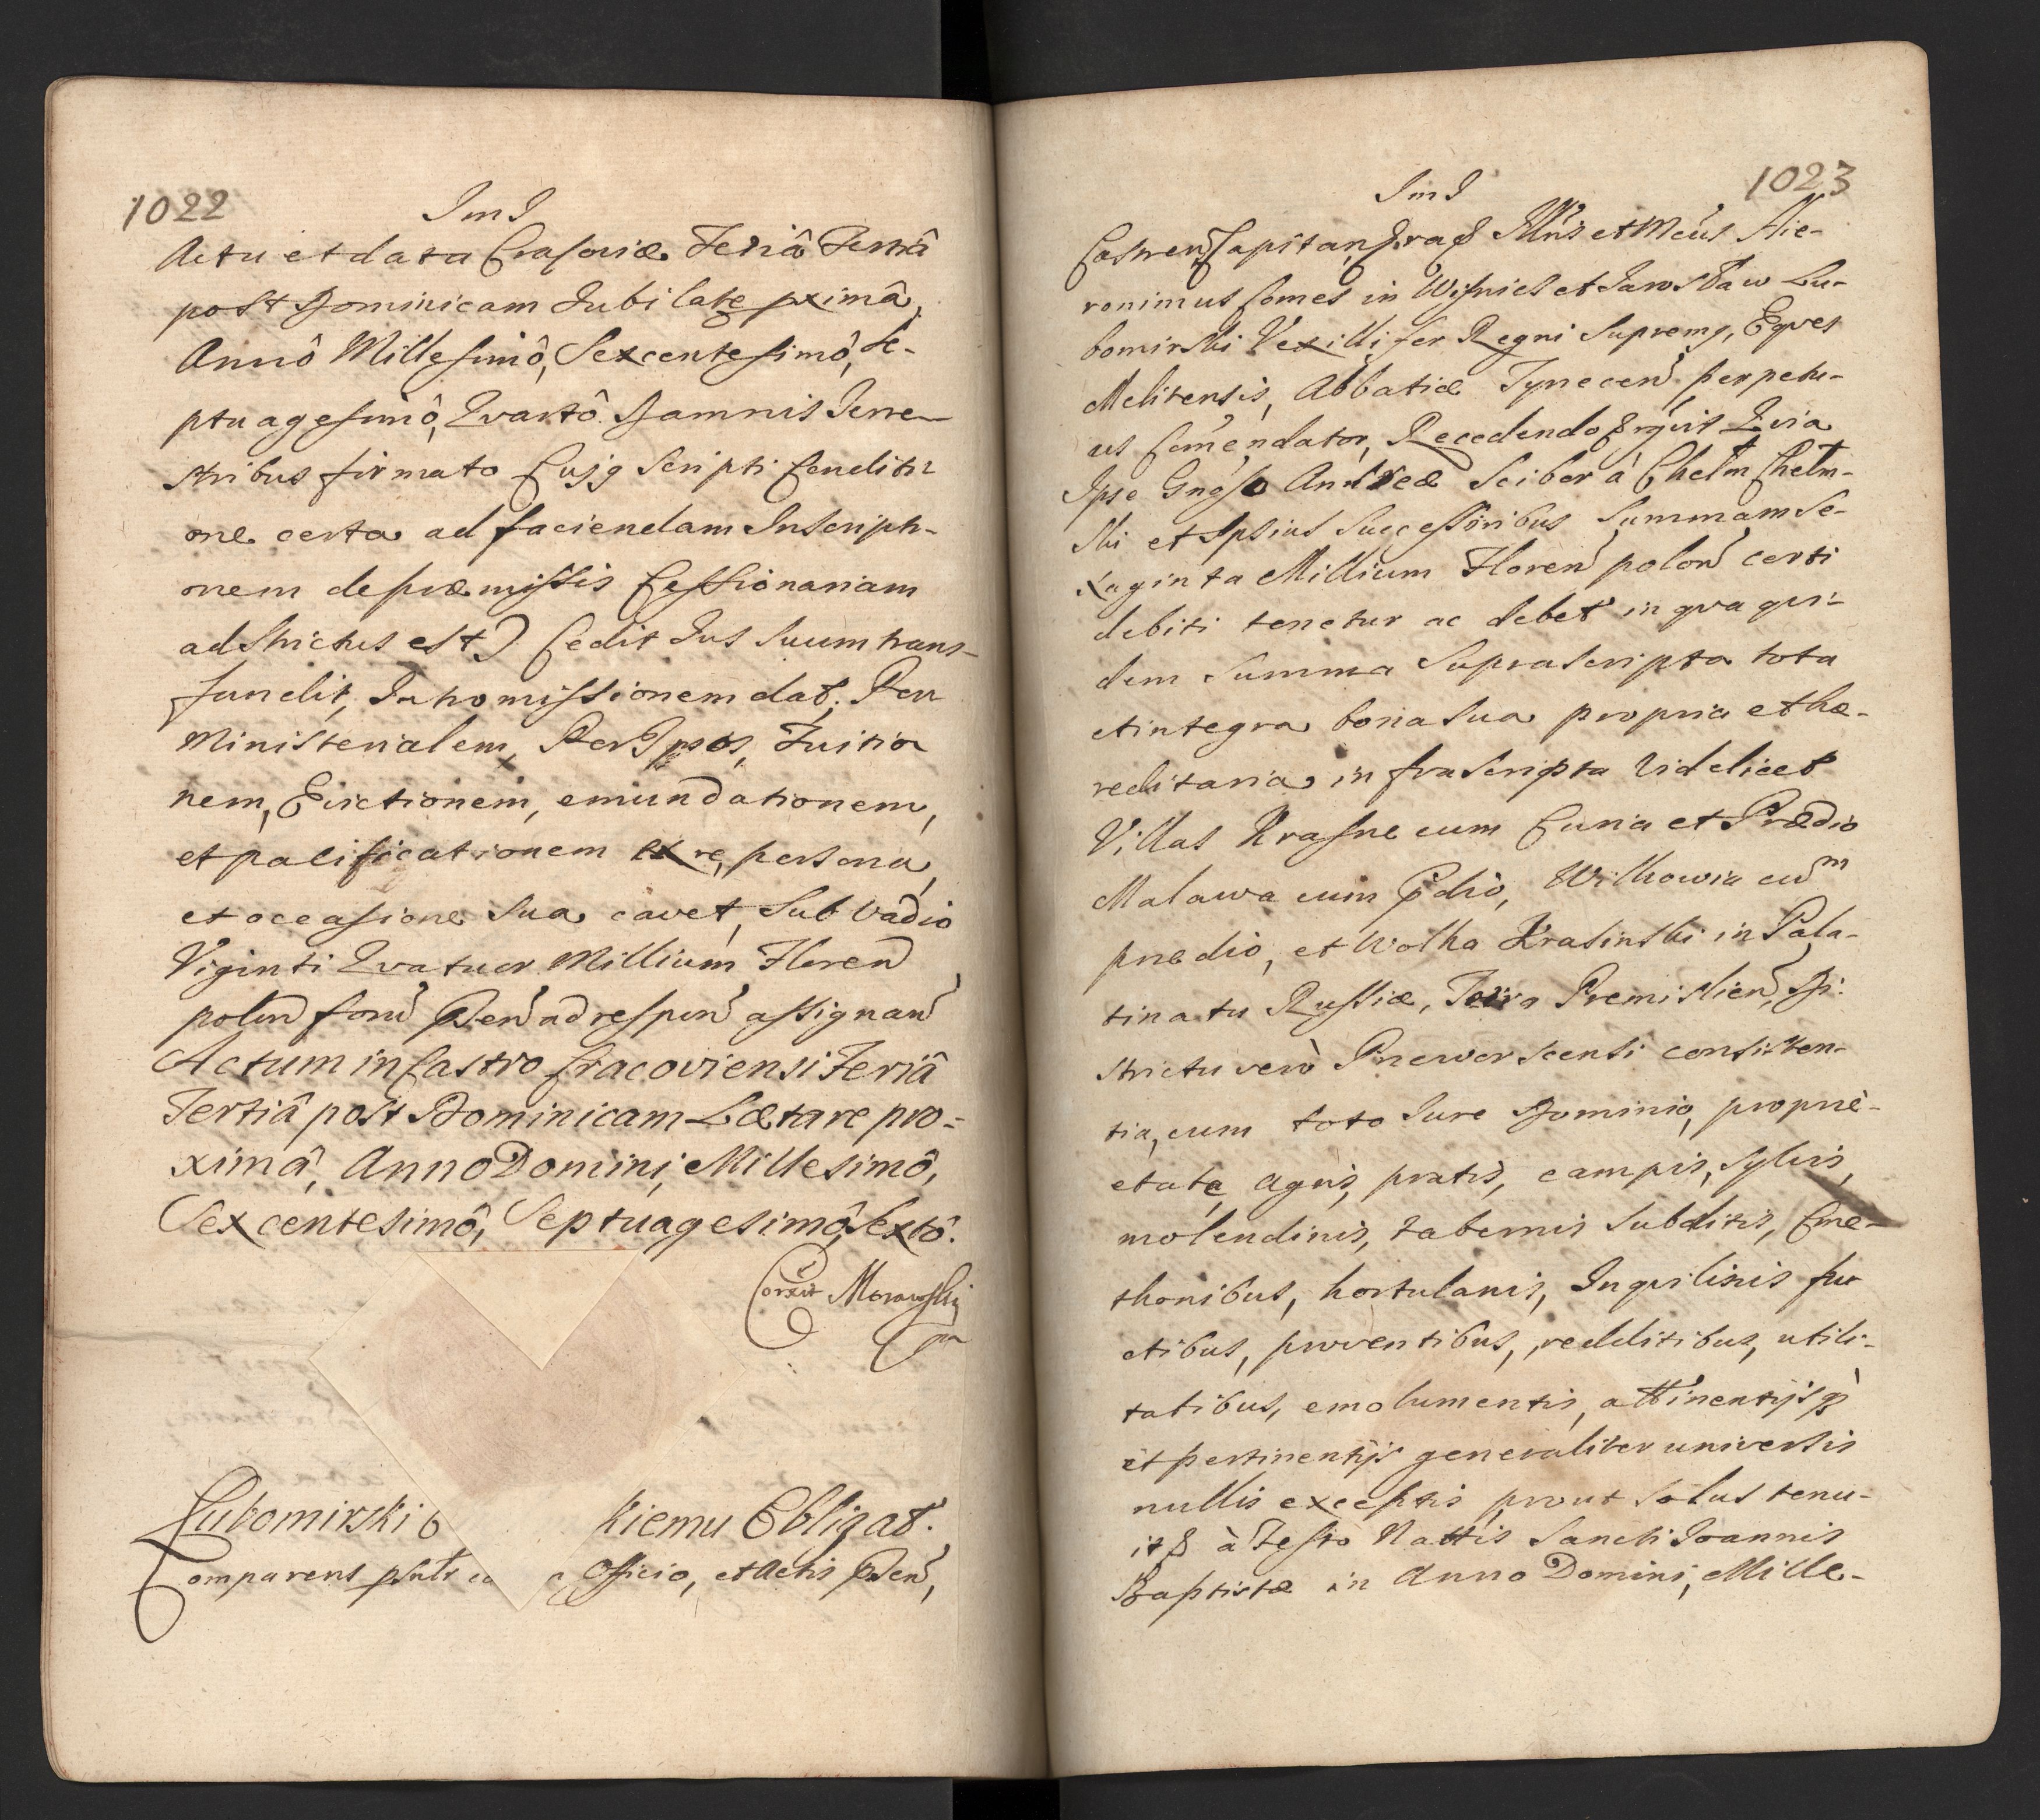 1022
ImJ
Actu et data Crasoviæ Feriâ Tertiâ
post Dominicam Jubilate pximâ,
Annô Millesimô, Sexcentesimô, Se-
ptuagesimô, Qvartô Damnis Terre-
stribus firmato Cujq Scripti Conditi-
one certa ad faciendam Inscripti-
onem de præmissis Cessionariam
adstrictus est) Cedit Jus Suum trans-
fundit, Intromissionem dat. Per
Ministerialem, Per Ipsos, Tuitio
nem, Evictionem, emundationem,
et pacificationem ex re, persona,
et occasione Sua cavet, Sub Vadio
Viginti Qvatuor Millium Floren
polon foru Psen ad respon assignan
Actum in Castro Cracoviensi Feriâ
Tertiâ post Dominicam Lætare pro-
ximâ, Anno Domini, Millesimô,
Sexcentesimô, Septuagesimô, Sextô.
Corxit Morawski
mp
Lubomirski kiemu Obligat.
Comparens psnlr Officio, et Actis Psen,
1023
ImJ
Castren Capitan, Grac Illris et Mcus Hie-
ronimus Comes in Wisnicz et Jarosław Lu-
bomirski Vexillifer Regni Supremq, Eqves
Melitensis, Abbatiæ Tynecen perpetu-
us Comendator, Recedendo Qvia
Ipse Gnoso Andreæ Scibor à Chełm Chełm-
ski et Ipsius Successoribus Summam Se-
xaginta Millium Floren polon certi
debiti tenetur ac debet in qva qvi-
dem Summa Suprascripta tota
et integra bona Sua propria et hæ-
reditaria infrascripta Videlicet
Villas Krasne cum Curia et Prædio
Malawa cum Pdio, Wilkowia cum
prædio, et Wolka Krasinski in Pala-
tinatu Russiæ, Terra Premislien, Di-
strictu verò Przeworscensi consisten-
tia, cum toto Jure Dominio, proprie-
etate, agris, pratis, campis, sylvis,
molendinis, tabernis Subditis, Cme-
thonibus, hortulanis, Inqvilinis fru
ctibus, proventibus, redditibus, utili-
tatibus, emolumentis, attinentijsq
et pertinentijs generaliter universis
nullis exceptis prout Solus tenu-
it & à Festo Nattis Sancti Joannis
Baptistæ in Anno Domini, Mille-